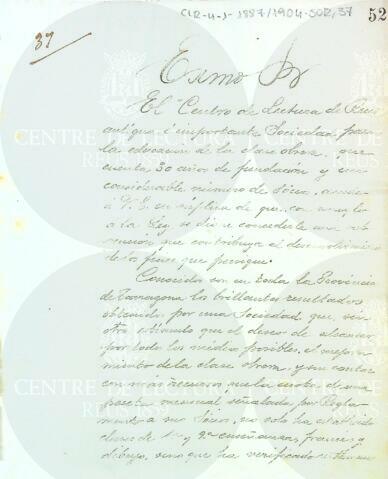 C1R-4-1-1887/1904-S02,37
52
37
Exmo Sr
El Centro de Lectura de Reus
antigua é importante Sociedad para
la educacion de la clase obrera, que
cuenta 30 años de fundacion y un
considerable número de Sócios, acude
a V.E. en súplica de que, con arreglo
a la Ley, se digne concederle una sub
vencion que contribuya al desenvolvimiento
de los fines que persigue.
Conocidos son en toda la Provincia
de Tarragona los brillantes resultados
obtenidos por una Sociedad que, sin
otro estímulo que el deseo de alcanzar
por todos los medios posibles, el mejora
miento de la clase obrera, y sin contar
con mas recursos que la cuota
mensual señalada por Regla
mento a sus Sócios, no solo ha establecido
clases de 1ª y 2ª enseñanza, frances y
dibujo, sino que ha verificado
CENTRE DE LECTURA
REUS 1859
CENTRE DE LECTURA
REUS 1859